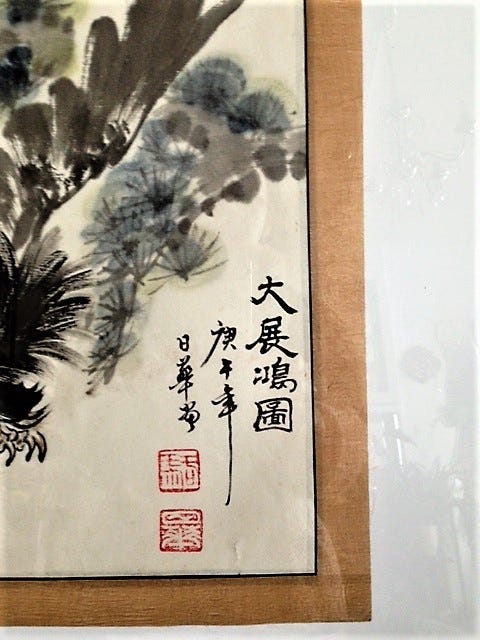 大展鴻圖
庚午年
日華畫